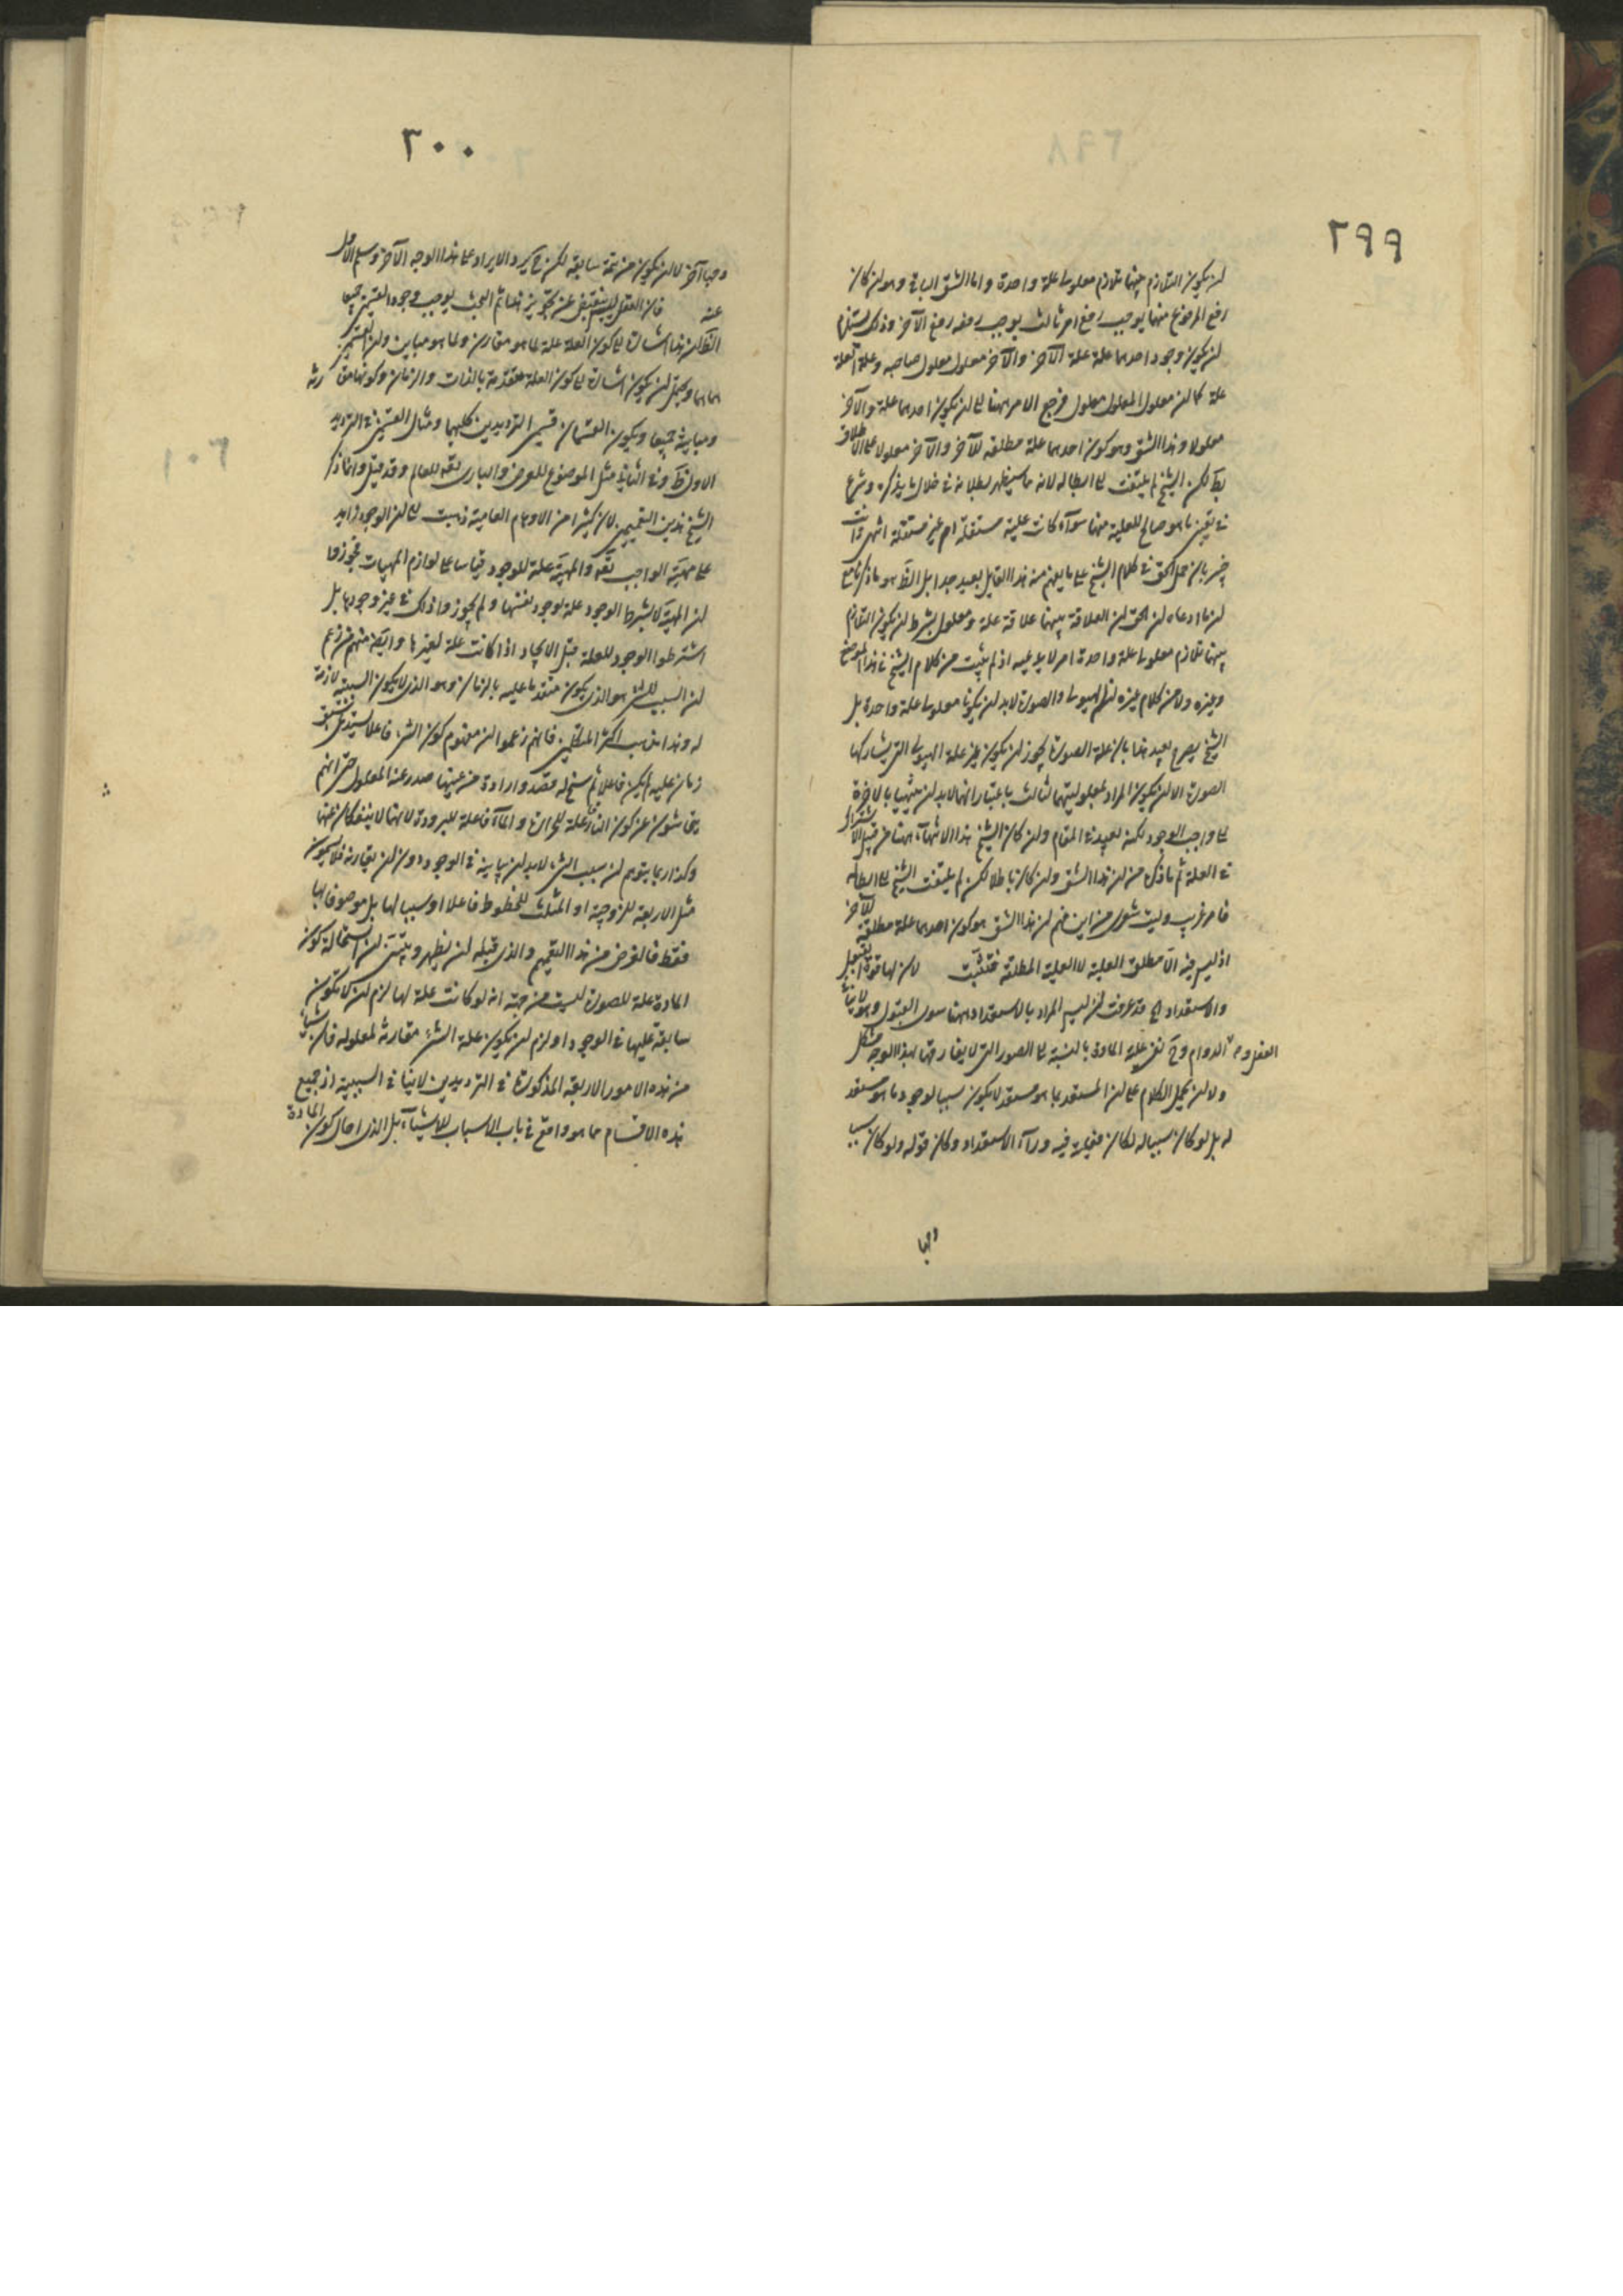 ٢٩٩
لن يكون التلازم بينهما تلازم معلولى علة واحدة واما الشق الباقى وهو لن كان
رفع المرفوع منهما يوجب رفع امر ثالث يوجب رفعه رفع الآخر وذلك يستلزم
لن يكون وجود احدهما علة علة الآخر والآخر معلول معلول صاحبه وعلة العلة
علة كما لن معلول المعلول معلول فرجع الامر ههنا الى لن يكون احدهما علة والآخر
معلولا وهذا الشق وهو كون احدهما علة مطلقه للآخر والآخر معلولا على الاطلاق
بط لكن الشيخ لم يلتفت الى ابطاله لانه ما سيظهر بطلانه فى خلال ما يذكره وشرع
فى تعين ما هو صالح للعلية منهما سوآء كانت علية مستقلة ام غير مستقلة انتهى وانت
خبير بان حمل الحق فى كلام الشيخ على ما يفهم من هذا القايل بعيد جدا بل الظ هو ما ذكرنا مع
لن ما ادعاه لن الحق لن العلاقة بينهما علاقة علة ومعلول بشرط لن يكون التلازم
بينهما تلازم معلولى علة واحدة امر لا بد عليه اذ لم يثبت من كلام الشيخ فى هذا الموضع
وغيره ولا من كلام غيره لن الهيولى والصورة لا بد لن يكونا معلولى علة واحدة بل
الشيخ يصرح بعيد هذا بان علة الصورة يجوز لن يكون غير علة الهيولى التى يشاركها
الصورة الا لن يكون المراد بمعلوليتهما لثالث باعتبار انهما لا بد لن ينتهيا بالاخرة
الى واجب الوجود لكنه بعيد فى المقام ولن كان الشيخ هذا الانتهآء ههنا من قبيل الاشتراك
فى العلة ثم ما ذكره من لن هذا الشق ولن كان باطلا لكن لم يلتفت الشيخ الى ابطاله
فامر غريب وليت شعرى من اين فهم لن هذا الشق هو كون احدهما علة مطلقة للآخر
اذ ليس فيه الا مطلق العلية لا العلية المطلقة فتثبت لان لها قوة القبول
والاستعداد الخ قد عرفت لن ليس المراد بالاستعداد ههنا سوى القبول وهو لا ينافى
الفعل وم الدوام وح نفى علية المادة بالنسبة الى الصور التى لا يفارقها بهذا الوجه مشكل
ولا لن يحمل الكلام على لن المستعد بما هو مستعد لا يكون سببا لوجود ما هو مستعد
له بل لو كان سببا له لكان بجهة فيه ورآء الاستعداد وكان قوله ولو كان سببا
وجها
٣٠٠
وجها آخر لا لن يكون من تتمة سابقه لكن ح يرد الايراد على هذا الوجه الآخر وسلم الاول
عنه فان العقل ليس ينقبض عن تجويز هذا ثم البحث يوجب وجود القسمين جميعا
الظ لن هذا اشارة الى كون العلة علة لما هو مقارن ولما هو مباين ولن القسمين
هما هما ويحتمل لن يكون اشارة الى كون العلة متقدمة بالذات والزمان وكونها مقارنة
ومباينة جميعا ويكون القسمان قسمى الترديدين كليهما ومثال القسمين فى الترديد
الاول ظ وفى الثانى مثل الموضوع للعرض والبارى تعه للعالم وقد قيل وانما ذكر
الشيخ هذين التعميمين لان كثيرا من الاوهام العامية ذهبت الى لن الوجود زايد
على مهية الواجب تعه والمهية علة للوجود قياسا على لوازم المهيات فجوزوا
لن المهية لا بشرط الوجود علة لوجود نفسها ولم يجوزوا ذلك فى غير وجودها بل
اشترطوا الوجود للعلة قبل الايجاد اذا كانت علة لغيرها وايضا منهم من زعم
لن السبب للشئ هو الذى يكون متقدما عليه بالزمان وهو الذى لا يكون السببية لازمة
له وهذا مذهب اكثر المتكلمين فانهم زعموا لن مفهوم كون الشئ فاعلا يستدعى لن يسبق
زمان عليه لم يكن فاعلا ثم سنح له قصد وارادة من عينها صدر عنه المعلول حتى انهم
يتحاشون عن كون النار علة للحرارة والمآء فاعلة للبرودة لانهما لا ينفكان عنهما
وكذا ربما يتوهم لن سبب الشئ لا بد لن يباينه فى الوجود دون لن يقارنه فلا يسمون
مثل الاربعة للزوجية او المثلث للخطوط فاعلا او سببا لها بل موصوفا بها
فقط فالغرض من هذا التعميم والذى قبله لن يظهر ويتبين لن استحالة كون
المادة علة للصورة ليست من جهة انه لو كانت علة لها لزم لن لا يكون
سابقة عليها فى الوجود او لزم لن يكون علة الشئ مقارنة لمعلوله فان شيئا
من هذه الامور الاربعة المذكورة فى الترديدين لا ينافى السببية اذ جميع
هذه الاقسام مما هو واقع فى باب الاسباب للاشيآء بل الذى احال كون المادة